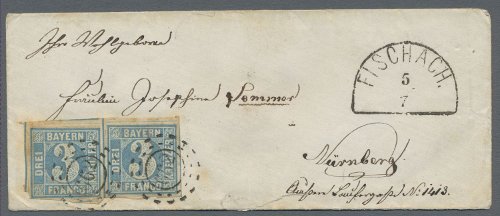 Ihro Wohlgeboren
Fräulein Josephine Sommer
FISCHACH.
5
7
Nürnberg
Äußere Laufergasse No. 1413.
BAYERN
DREI
3
FRANCO
BAYERN
DREI
3
FRANCO